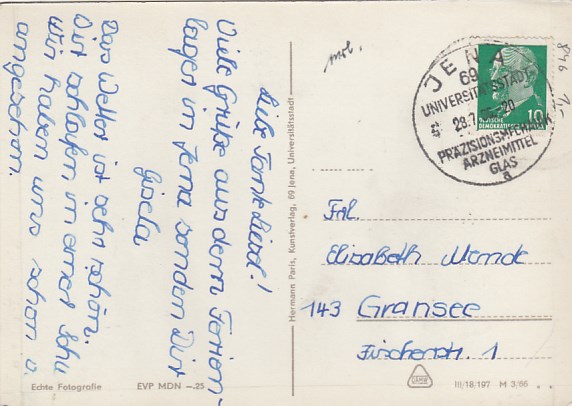 Liebe Tante Liesel!
Viele Grüße aus dem Ferien-
lager in Jena sendet Dir
Gisela
Das Wetter ist sehr schön.
Wir schlafen in einer Schu
Wir haben uns schon v.
angesehen.
Hermann Paris, Kunstverlag, 69 Jena, Universitätsstadt
Echte Fotografie
EVP MDN —.25
mol.
846
1.-
JENA
69
UNIVERSITÄTSSTADT
20
PRÄZISIONSAPPARATE
ARZNEIMITTEL
GLAS
a
10
DEUTSCHE
DEMOKRATISCHE
Frl.
Elisabeth Mende
143 Gransee
Fischerstr. 1
III/18/197 M 3/66